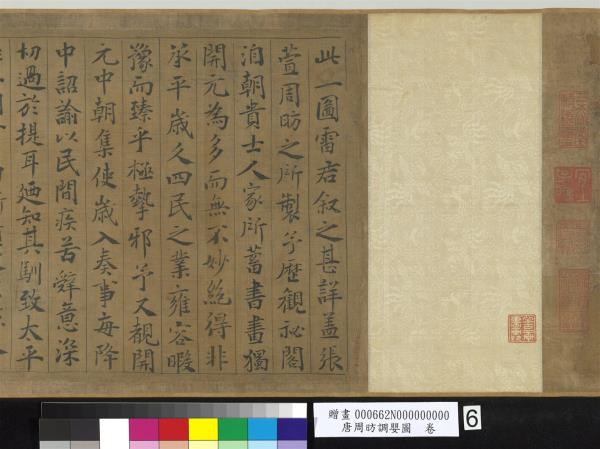 此一圖雷君叙之甚詳蓋張
萱周昉之所製予歷觀祕閣
洎朝貴士人家所蓄書畫獨
開元為多而無不妙絶得非
承平歲久四民之業雍容暇
豫而臻乎極摯邪予又覩開
元中朝集使歲入奏事每降
中詔諭以民間疾苦辭意深
切過於提耳廼知其馴致太平
贈畫 000662N000000000
唐周昉調嬰圖 卷
6